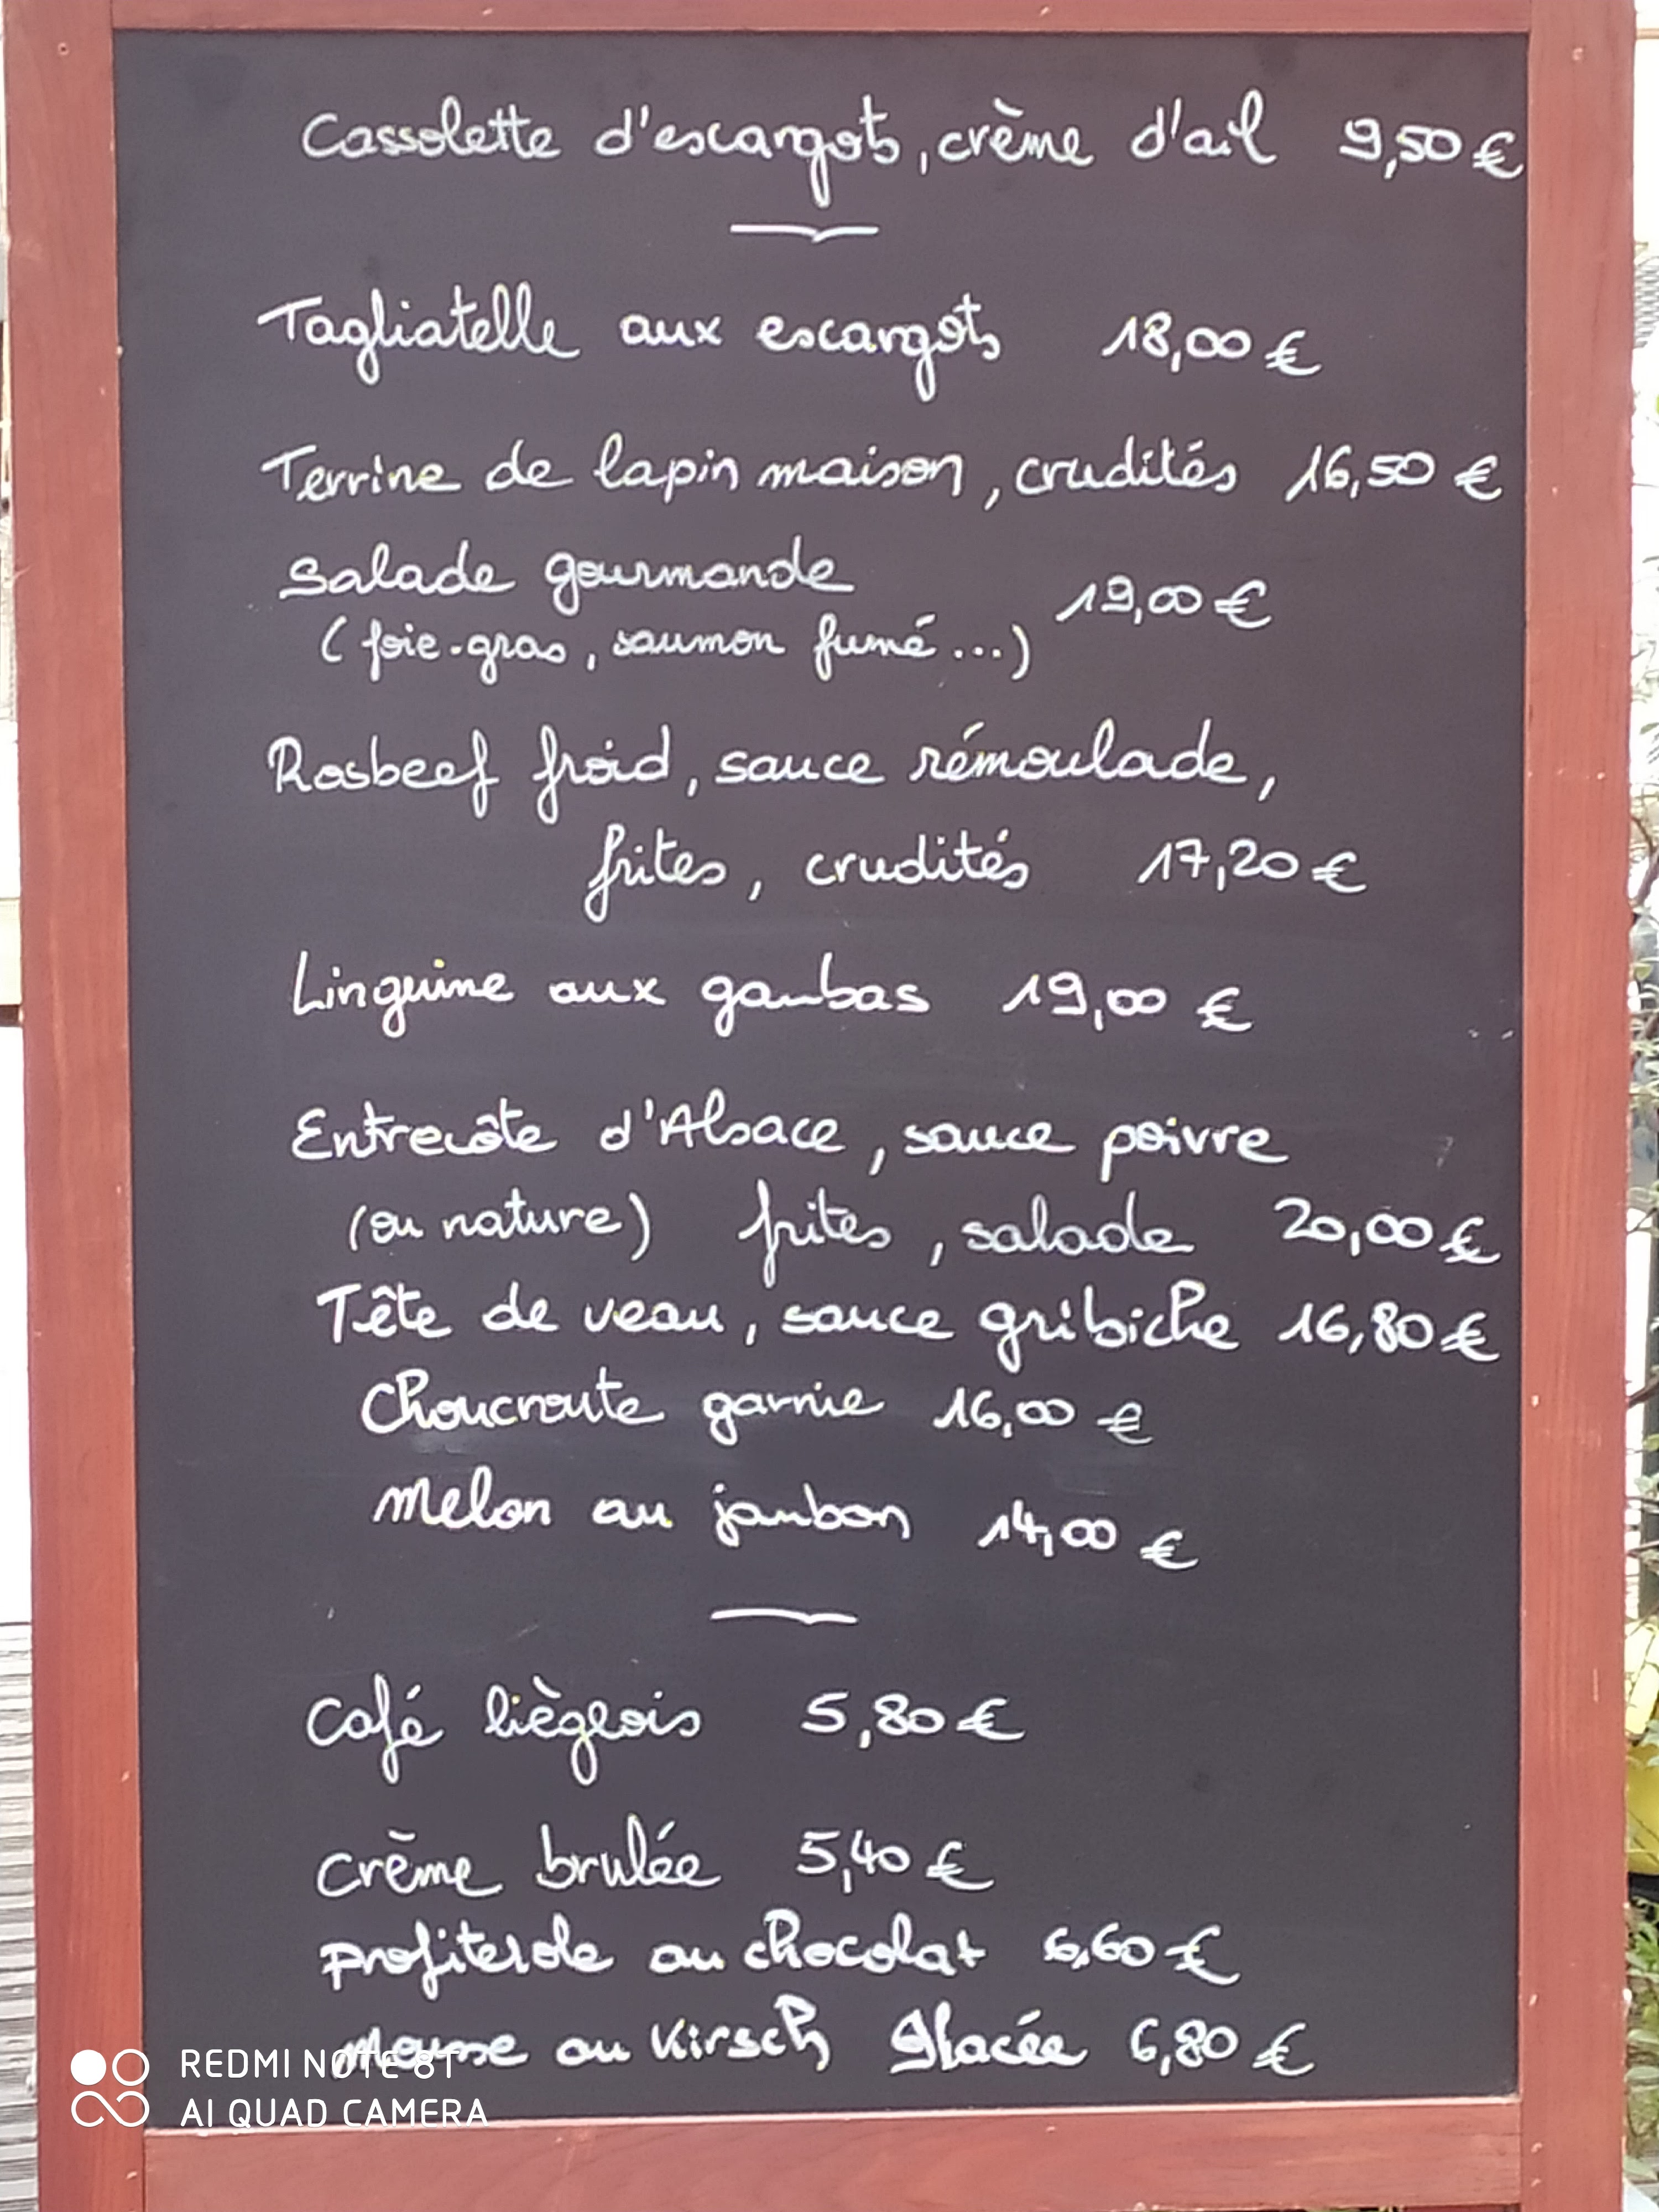 Cassolette d'escargots, crème d'ail 9,50 €
Tagliatelle aux escargots 18,00 €
Terrine de lapin maison, crudités 16,50 €
Salade gourmande 19,00 €
(foie-gras, saumon fumé...)
Rosbeef froid, sauce rémoulade,
frites, crudités 17,20 €
Linguine aux gambas 19,00 €
Entrecôte d'Alsace, sauce poivre
(ou nature) frites, salade 20,00 €
Tête de veau, sauce gribiche 16,80 €
Choucroute garnie 16,00 €
Melon au jambon 14,00 €
Café liègeois 5,80 €
Crème brulée 5,40 €
Profiterole au chocolat 6,60 €
Mousse au Kirsch Glacée 6,80 €
REDMI NOTE 8T
AI QUAD CAMERA